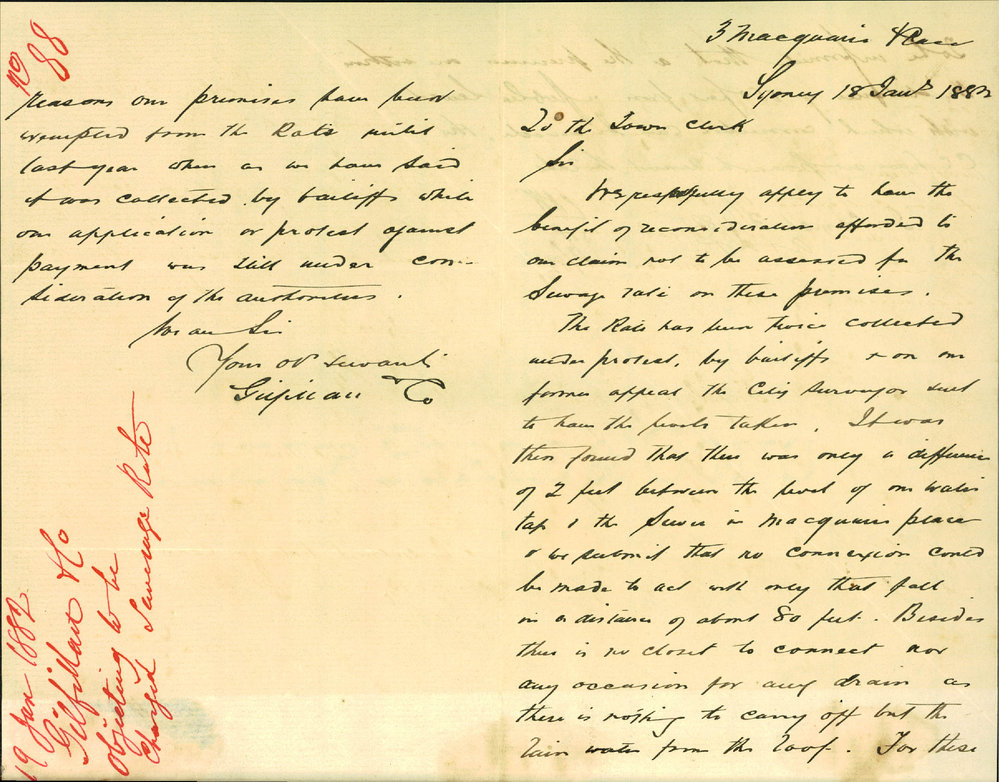 3 Macquarie Place
Sydney 18 Jany 1882
To the Town Clerk
Sir
We respectfully apply to have the
benefit of reconsideration afforded to
our claim not to be assessed for the
Sewage rate on these premises.
The Rate has been twice collected
under protest, by bailiffs & on our
former appeal the City Surveyor sent
to have the levels taken. It was
then found that there was only a difference
of 2 feet between the level of our water
tap & the Sewer in Macquarie place
& we submit that no connexion could
be made to act with only that fall
in a distance of about 80 feet. Besides
there is no closet to connect nor
any occasion for any drain as
there is nothing to carry off but the
rain water from the roof. For these
reasons our premises have been
exempted from the Rate until
last year when as we have said
it was collected by bailiffs while
our application or protest against
payment was still under con-
sideration of the authorities.
We are Sir
Your ob servants
Gilfillan & Co
No
88
19 Jan 1882
Gilfillan & Co
Objecting to be
charged Sewerage Rate